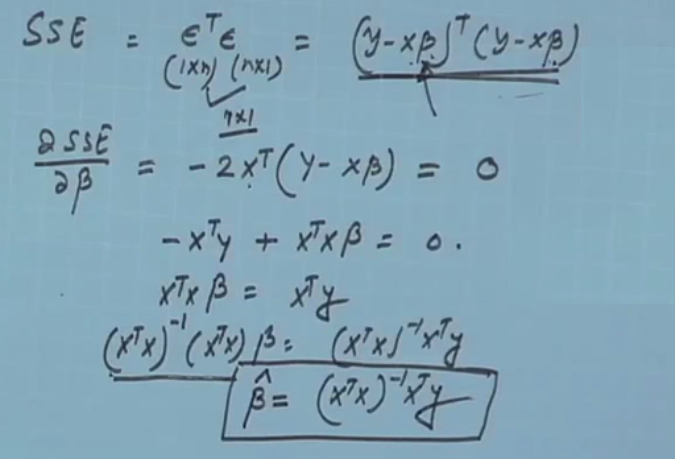 SSE = ϵᵀϵ = (y-xβ)ᵀ(y-xβ)
(1xn) (nx1)
nx1
∂SSE/∂β = -2xᵀ(y-xβ) = 0
-xᵀy + xᵀxβ = 0.
xᵀxβ = xᵀy
(xᵀx)⁻¹(xᵀx)β = (xᵀx)⁻¹xᵀy
β̂ = (xᵀx)⁻¹xᵀy